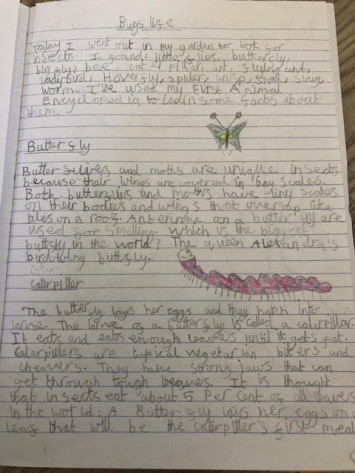 Bugs life
Today I went out in my garden to look for
insects. I found: litter flies, butterfly,
big fly, bee, caterpillar, ant, flying ant,
ladybird, Hoverfly, spider, wasp, snail, slug,
worm. I've used my First Animal
Encyclopedia to learn some facts about
them.
Butterfly
Butterflives and moths are unique insects
because their wings are covered in tiny scales.
Both butterflys and moths have tiny scales
on their bodies and wings that overlap like
tiles on a roof. Antennae on a butterfly are
used for smelling. Which is the biggest
buttfly in the world? The queen Alexandry's
birdwing buttfly.
caterpiller
The butterfly lays her eggs and they hatch into
larvae. The larvae of a butterfly is called a caterpillar.
It eats and eats enough leaves until it gets fat.
Caterpillers are typical vegetarian biters and
chewers. They have strong jaws that can
get through tough leaves. It is thought
that insects eat about 5 Per cent of all leaves
in the world. A Butterfly lays her eggs on
leaf that will be the caterpiller's first meal